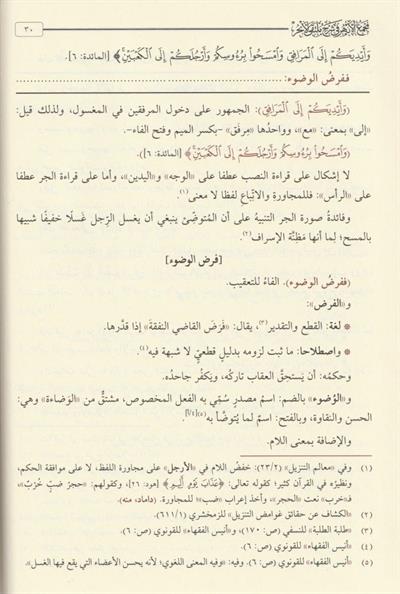 مجمع الأنهر في شرح ملتقى الأبحر
٣٠
وَأَيْدِيَكُمْ إِلَى الْمَرَافِقِ وَامْسَحُوا بِرُءُوسِكُمْ وَأَرْجُلَكُمْ إِلَى الْكَعْبَيْنِ﴾ [المائدة: ٦].
ففرضُ الوضوءِ:
(وَأَيْدِيَكُمْ إِلَى الْمَرَافِقِ): الجمهور على دخول المرفقين في المغسول، ولذلك قيل:
«إلى» بمعنى: «مع»، وواحدُها «مِرفَق» -بكسر الميم وفتح الفاء-.
(وَامْسَحُوا بِرُءُوسِكُمْ وَأَرْجُلَكُمْ إِلَى الْكَعْبَيْنِ﴾ [المائدة: ٦].
لا إشكال على قراءة النصب عطفا على «الوجه» و«اليدين»، وأما على قراءة الجر عطفا
على «الرأس»: فللمجاورةِ والاتّباعِ لفظا لا معنى(١).
وفائدةُ صورة الجر التنبيهُ على أن المُتوضّئ ينبغي أن يغسل الرِّجل غَسلًا خفيفًا شبيها
بالمسح؛ لِما أنها مَظِنّة الإسراف(٢).
[فرض الوضوء]
(ففرضُ الوضوءِ). الفاءُ للتعقيب.
و«الفرض»:
* لغة: القطع والتقدير(٣)، يقال: «فَرَضَ القاضي النفقةَ» إذا قدَّرها.
* واصطلاحا: ما ثبت لزومه بدليلٍ قطعيٍّ لا شبهة فيه(٤).
وحكمُه: أن يَستحِقَّ العقابَ تاركُه، ويَكفُر جاحدُه.
و«الوُضوء» بالضم: اسمُ مصدرٍ سُمِّي به الفعل المخصوص، مشتقٌّ من «الوَضاءة» وهي:
الحسن والنقاوة، وبالفتح: اسمٌ لما يُتوضأ به(٥)
والإضافة بمعنى اللام.
(١) وفي «معالم التنزيل» (٢٣/٢): خفضُ اللام في «الأرجل» على مجاورة اللفظ، لا على موافقة الحكم،
ونظيرُه في القرآن كثير؛ كقوله تعالى: ﴿عَذَابَ يَوْمٍ أَلِيمٍ﴾ [هود: ٢٦]، وكقولهم: «جحرُ ضبٍّ خَرِبٍ»،
فـ«خرب» نعت «الحجر»، وأخذ إعراب «ضب» للمجاورة. (داماد، منه).
(٢) «الكشاف عن حقائق غوامض التنزيل» للزمخشري (٦١١/١)
(٣) «طلبة الطلبة» للنسفي (ص: ١٧٠)، و«أنيس الفقهاء» للقونوي (ص: ٦).
(٤) «أنيس الفقهاء» للقونوي (ص: ٦).
(٥) «أنيس الفقهاء» للقونوي (ص: ٦). وفيه: «وفيه المعنى اللغوي؛ لأنه يحسن الأعضاء التي يقع فيها الغسل».